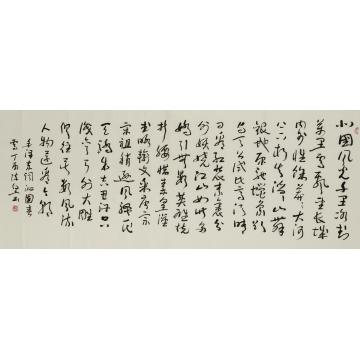 北国风光千里冰封
万里雪飘望长城
内外惟余莽莽大河
上下顿失滔滔山舞
银蛇原驰蜡象欲
与天公试比高须晴
日看红装素裹分
外妖娆江山如此多
娇引无数英雄竞
折腰惜秦皇汉
武略输文采唐宗
宋祖稍逊风骚一代
天骄成吉思汗只
识弯弓射大雕
俱往矣数风流
人物还看今朝
毛泽东词沁园春
雪丁酉